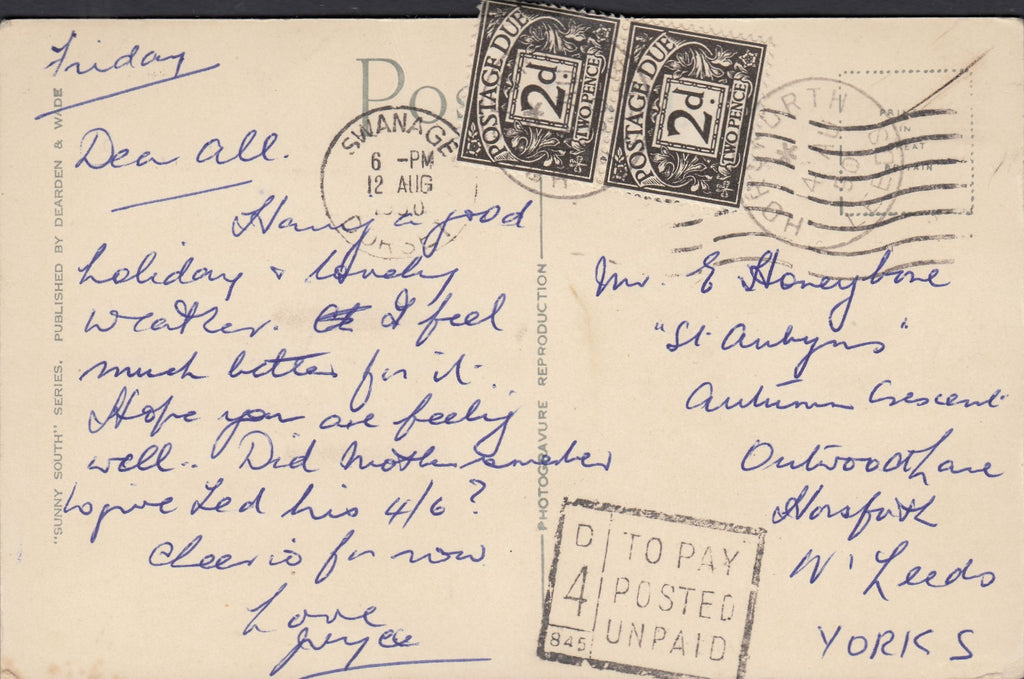 Friday
Dear All.
Having a good
holiday & lovely
weather. I feel
much better for it.
Hope you are feeling
well.. Did Mother remember
to give Ted his 4/6?
Cheerio for now
Love
Joyce
"SUNNY SOUTH" SERIES. PUBLISHED BY DEARDEN & WADE
PHOTOGRAVURE REPRODUCTION
Pos
SWANAGE
6 -PM
12 AUG
DORSET
POSTAGE DUE
2d.
TWO PENCE
POSTAGE DUE
2d.
TWO PENCE
HORSFORTH
LEEDS
Mr. E Honeybone
"St Aubyns"
Autumn Crescent
Outwood Lane
Horsforth
Nr Leeds
YORKS
D
4
845
TO PAY
POSTED
UNPAID